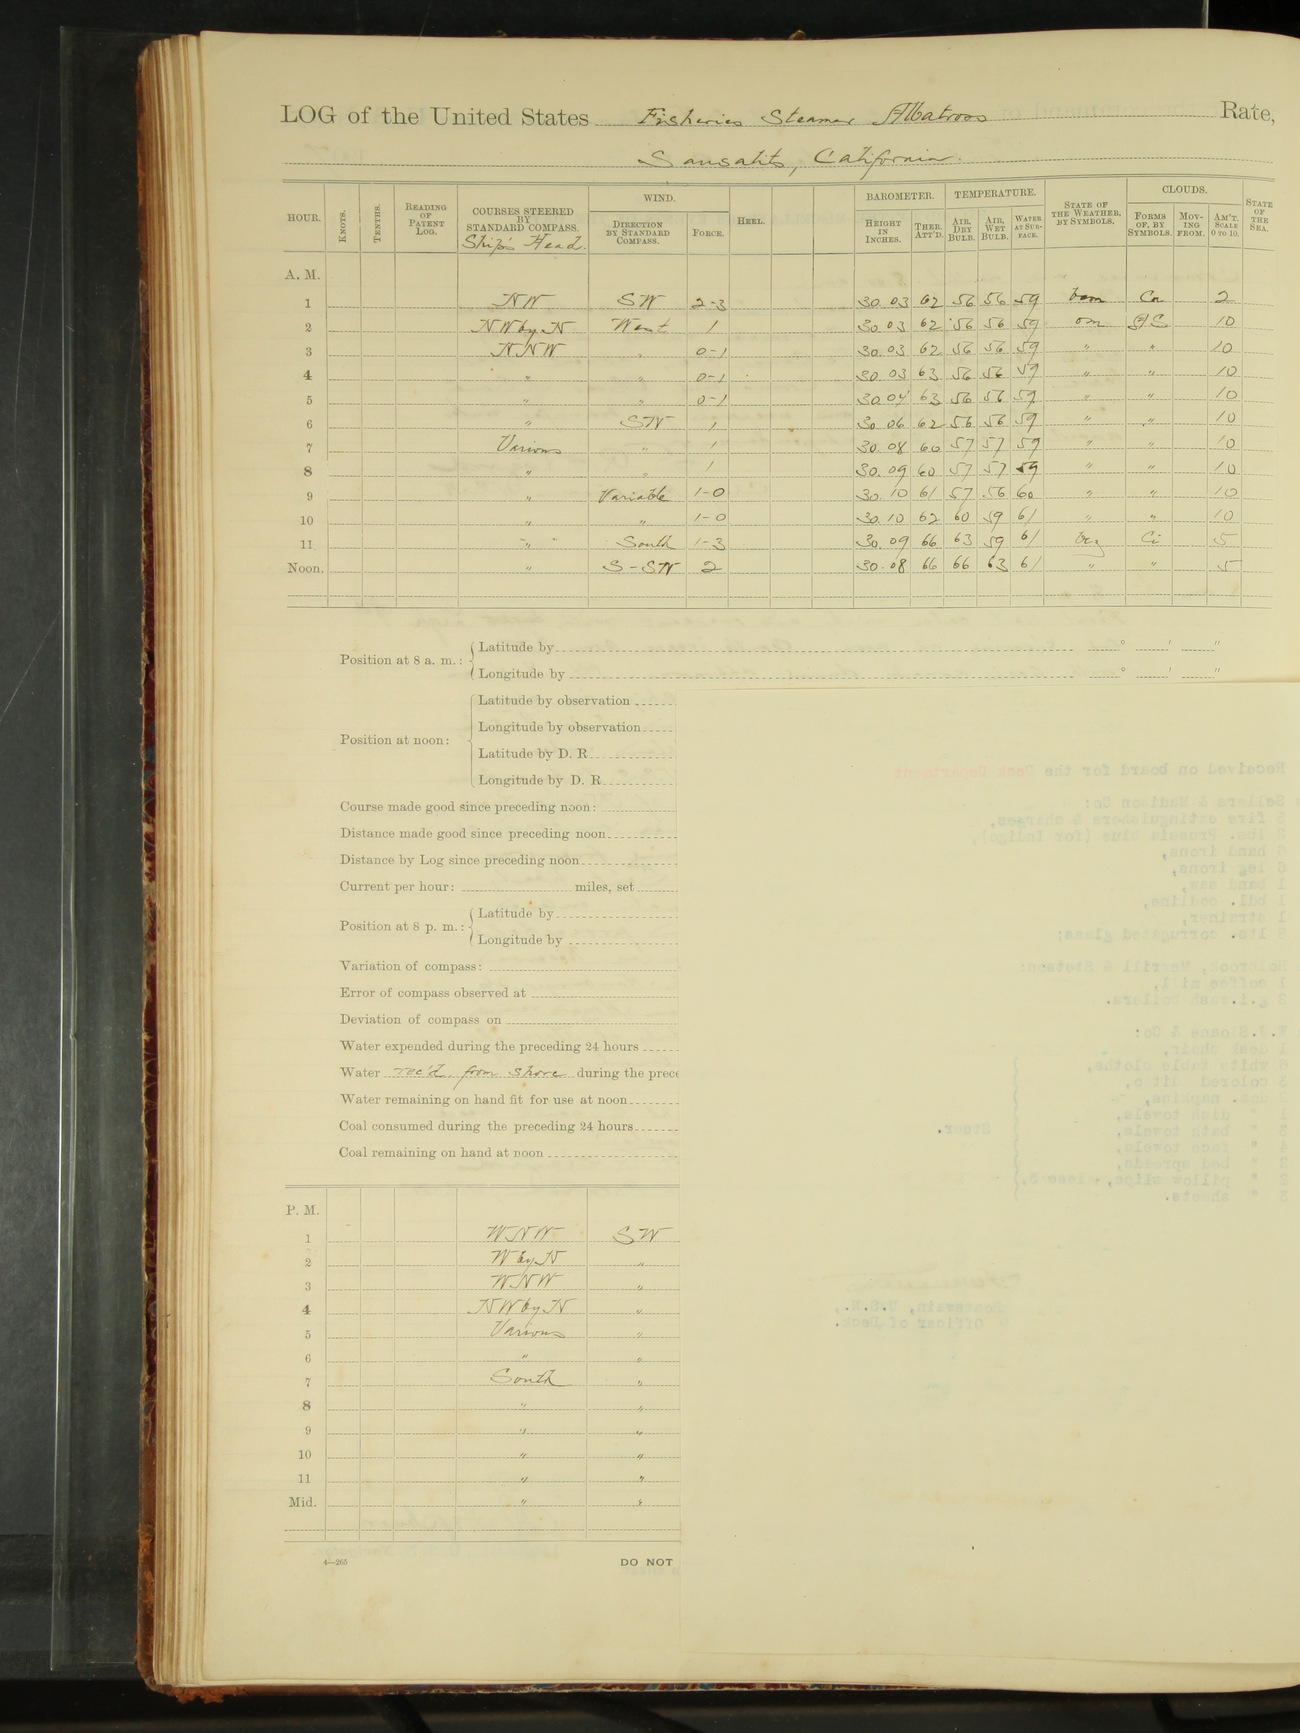 LOG of the United States Fisheries Steamer Albatross Rate,
Sausalito, California.
HOUR. KNOTS. TENTHS. READING OF PATENT LOG. COURSES STEERED BY STANDARD COMPASS. Ship's Head. WIND. DIRECTION BY STANDARD COMPASS. FORCE. HEEL. BAROMETER. HEIGHT IN INCHES. THER. ATT'D. TEMPERATURE. AIR, DRY BULB. AIR, WET BULB. WATER AT SURFACE. STATE OF THE WEATHER, BY SYMBOLS. CLOUDS. FORMS OF, BY SYMBOLS. MOVING FROM. AM'T. SCALE 0 TO 10. STATE OF THE SEA.
A. M.
1 NW SW 2-3 30.03 62 56 56 59 bcm Cu 2
2 NW by N West 1 30.03 62 56 56 59 om 10
3 NNW " 0-1 30.03 62 56 56 59 " " 10
4 " " 0-1 30.03 63 56 56 59 " " 10
5 " " 0-1 30.04 63 56 56 59 " " 10
6 " SW 1 30.06 62 56 56 59 " " 10
7 Various " 1 30.08 60 57 57 59 " " 10
8 " " 1 30.09 60 57 57 59 " " 10
9 " Variable 1-0 30.10 61 57 56 60 " " 10
10 " " 1-0 30.10 62 60 59 61 " " 10
11 " South 1-3 30.09 66 63 59 61 bcz Ci 5
Noon. " S-SW 2 30.08 66 66 63 61 " " 5
Position at 8 a. m.: Latitude by ° ' "
Longitude by ° ' "
Position at noon: Latitude by observation
Longitude by observation
Latitude by D. R
Longitude by D. R
Course made good since preceding noon:
Distance made good since preceding noon
Distance by Log since preceding noon
Current per hour: miles, set
Position at 8 p. m.: Latitude by
Longitude by
Variation of compass:
Error of compass observed at
Deviation of compass on
Water expended during the preceding 24 hours
Water rec'd. from shore during the prece
Water remaining on hand fit for use at noon
Coal consumed during the preceding 24 hours
Coal remaining on hand at noon
P. M.
1 WNW SW
2 W by N "
3 WNW "
4 NW by N "
5 Various "
6 " "
7 South "
8 " "
9 " "
10 " "
11 " "
Mid. " "
4—265 DO NOT